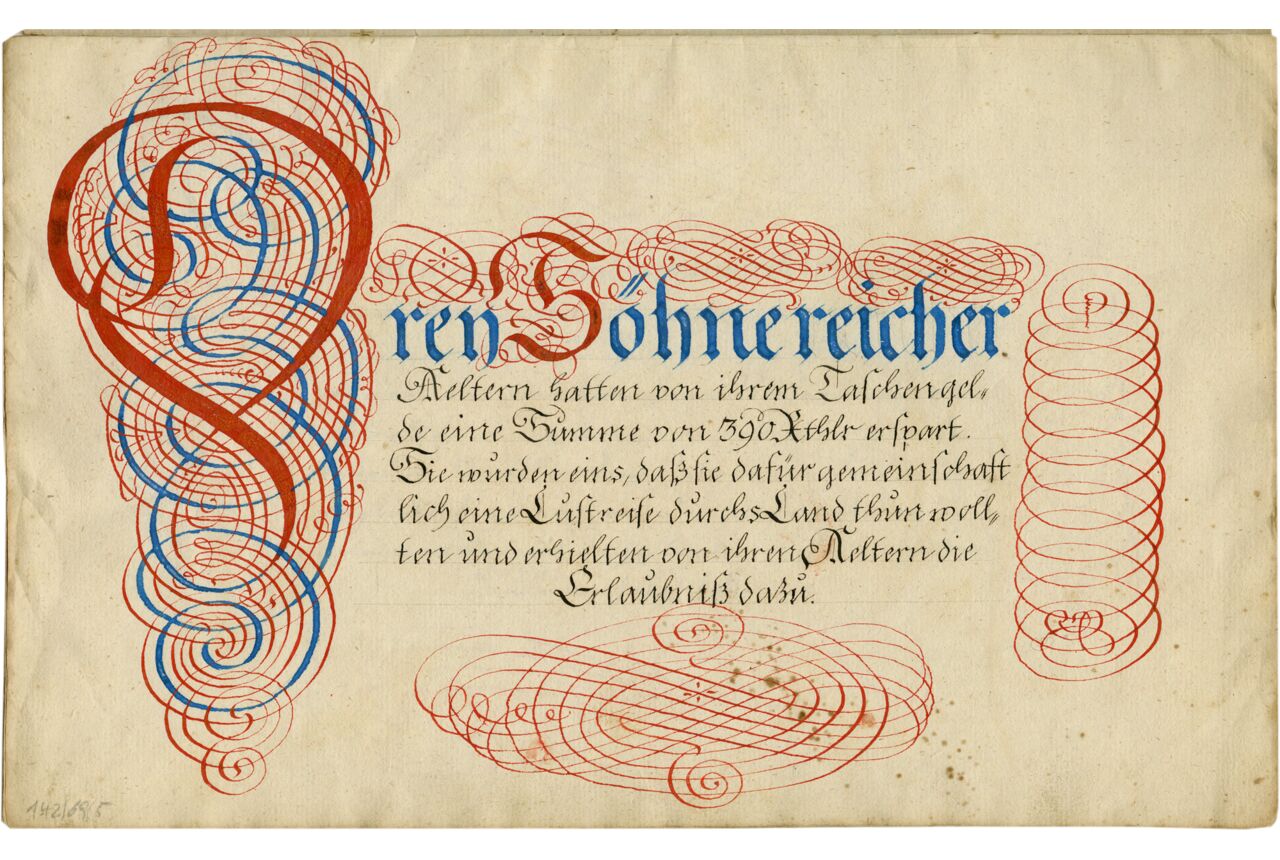 Drey Söhne reicher
Aeltern hatten von ihrem Taschengel⸗
de eine Summe von 390 Rthlr erspart.
Sie wurden eins, daß sie dafür gemeinschaft
lich eine Lustreise durchs Land thun woll⸗
ten und erhielten von ihren Aeltern die
Erlaubniß dazu.